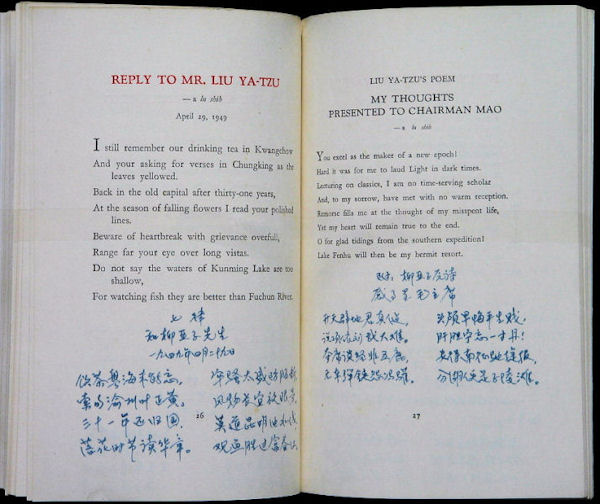 REPLY TO MR. LIU YA-TZU
—a lu shih
April 29, 1949
I still remember our drinking tea in Kwangchow
And your asking for verses in Chungking as the
leaves yellowed.
Back in the old capital after thirty-one years,
At the season of falling flowers I read your polished
lines.
Beware of heartbreak with grievance overfull,
Range far your eye over long vistas.
Do not say the waters of Kunming Lake are too
shallow,
For watching fish they are better than Fuchun River.
七律
和柳亚子先生
一九四九年四月二十九日
饮茶粤海未能忘,
索句渝州叶正黄。
三十一年还旧国,
落花时节读华章。
牢骚太盛防肠断
风物长宜放眼量
莫道昆明池水浅
观鱼胜过富春江
26
LIU YA-TZU'S POEM
MY THOUGHTS
PRESENTED TO CHAIRMAN MAO
—a lu shih
You excel as the maker of a new epoch!
Hard it was for me to laud Light in dark times.
Lecturing on classics, I am no time-serving scholar
And, to my sorrow, have met with no warm reception.
Remorse fills me at the thought of my misspent life,
Yet my heart will remain true to the end.
O for glad tidings from the southern expedition!
Lake Fenhu will then be my hermit resort.
附:柳亚子原诗
感事呈毛主席
开天辟地君真健,
说项依刘我大难。
夺席谈经非五鹿,
无车弹铗怨冯驩。
头颅早悔平生贱,
肝胆宁忘一寸丹!
安得南征驰捷报,
分湖便是子陵滩。
27